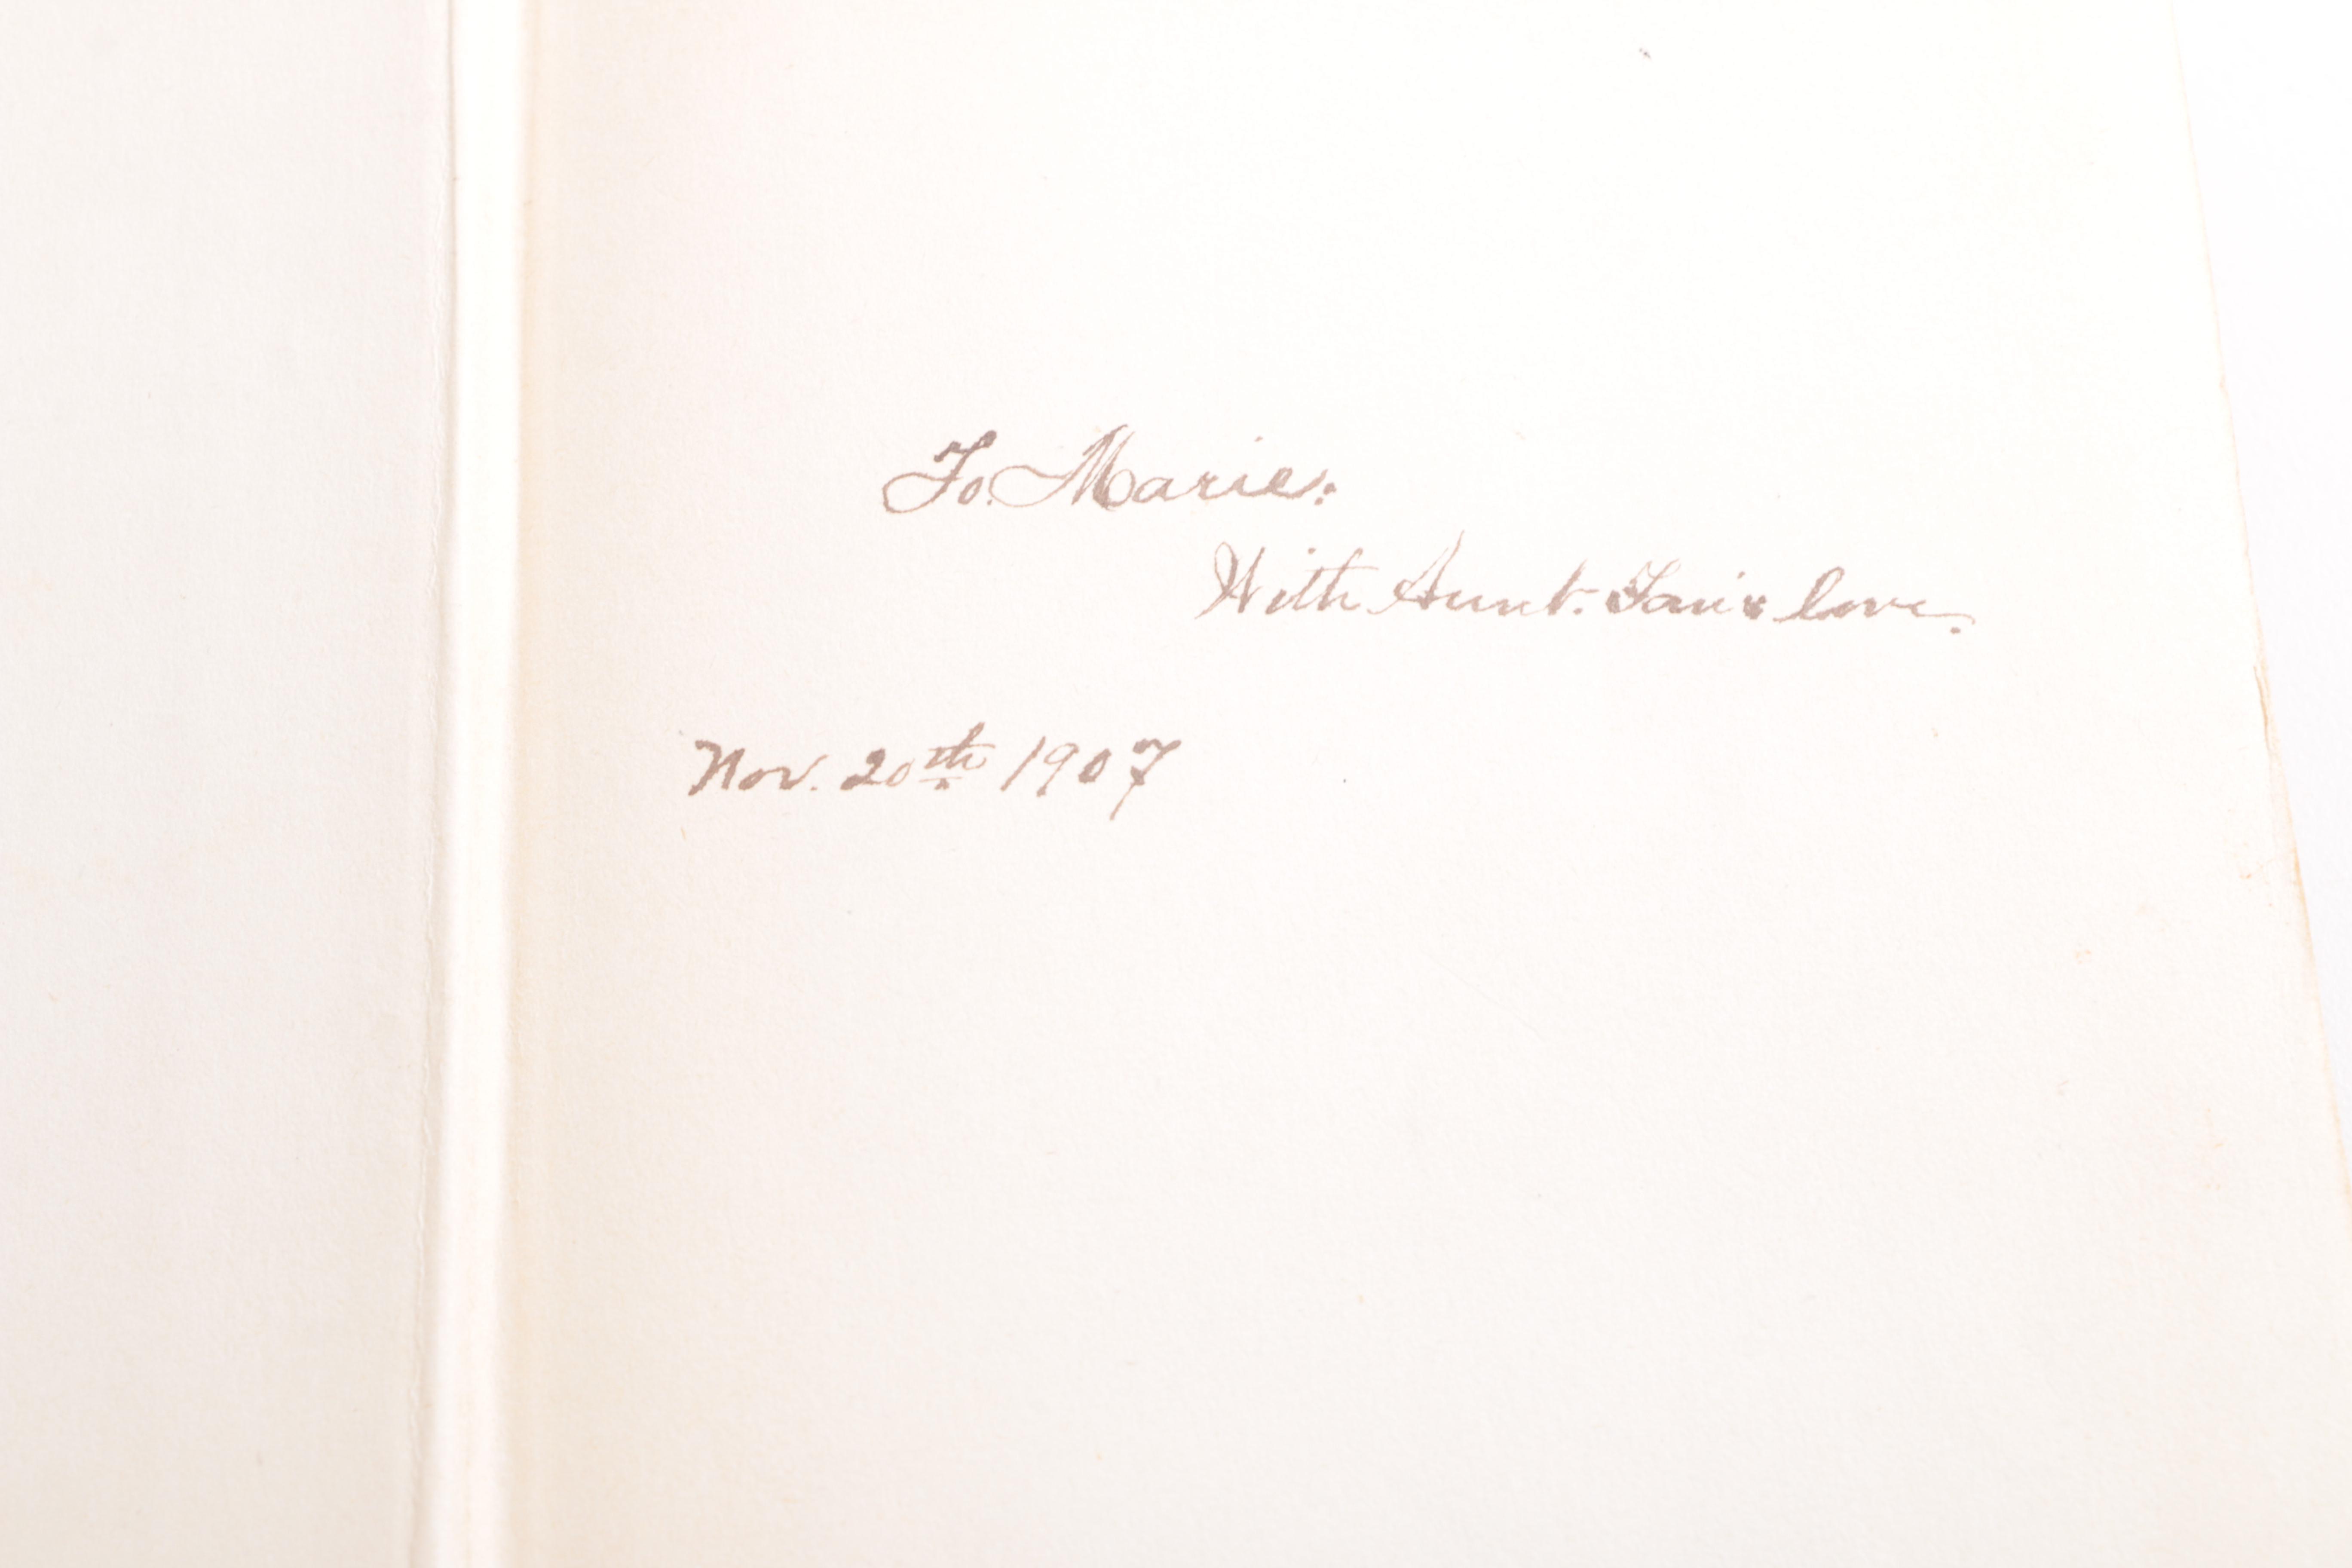 To. Marie.
With Aunt. love.
Nov. 20th 1907